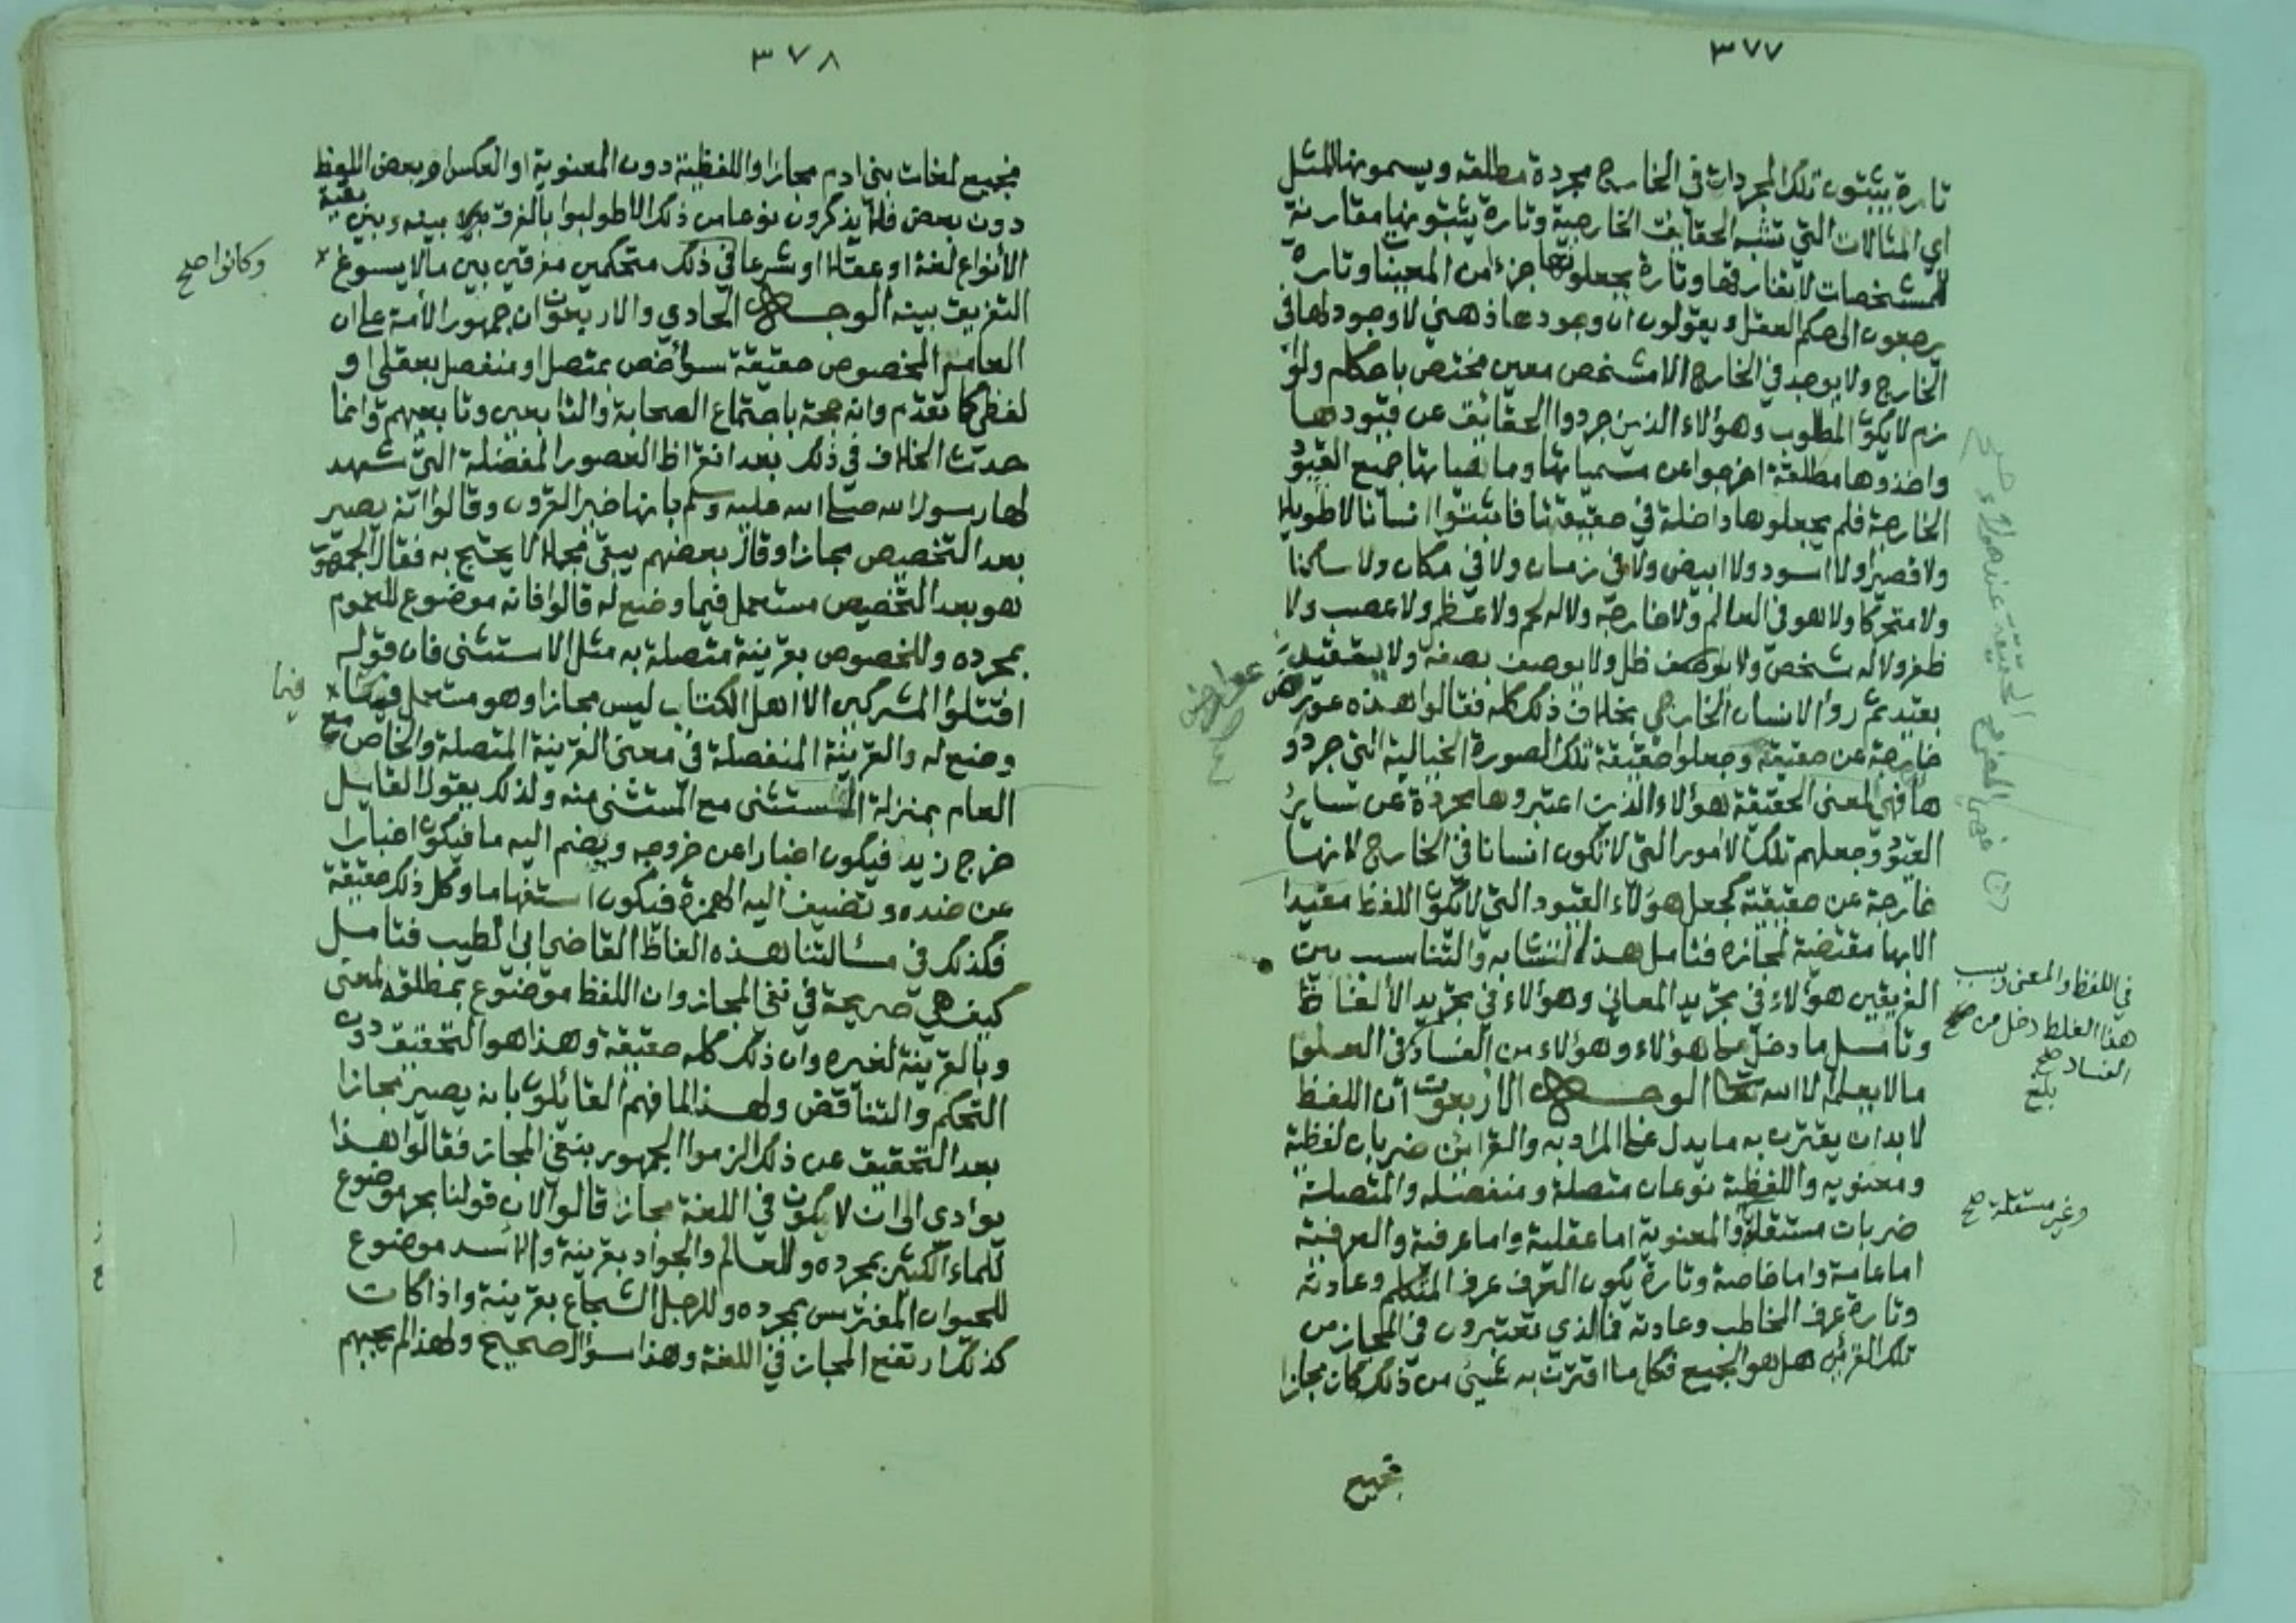 ٣٧٧
تارة يثبتون تلك المجردات في الخارج مجردة مطلقه ويسمونها المثل
اي المثالات التي تشبه الحقايق الخارجية وتارة يثبتونها مقارنة
للمشخصات لا تفارقها وتارة يجعلونها جزءا من المعينات وتارة
يرجعون الى حكم العقل ويقولون ان وجودها ذهني لا وجود لها في
الخارج ولا يوجد في الخارج الا مشخص معين مختص باحكام ولوا
زم لا يكون المطلوب وهؤلاء الذين جردوا الحقائق عن قيودها
واخذوها مطلقة اخرجوا عن مسمياتها وماهياتها جميع القيود
الخارجية فلم يجعلوها داخلة في حقيقتها فاثبتوا انسانا لا طويلا
ولا قصيرا ولا اسود ولا ابيض ولا في زمان ولا في مكان ولا ساكنا
ولا متحركا ولا هو في العالم ولا خارجه ولا له لحم ولا عظم ولا عصب ولا
ظفر ولا له شخص ولا ظل ولا يوصف بصفة ولا يتقيد
بقيد ثم رؤا الانسان الخارجي بخلاف ذلك كله فقالوا هذه عوارض
خارجة عن حقيقته وجعلوا حقيقة تلك الصورة الخيالية التي جردو
ها فهي المعنى الحقيقة هؤلاء الذين اعتبروها مجردة عن سائر
القيود وجعلهم تلك الامور التي لا تكون انسانا في الخارج لانها
خارجة عن حقيقته كجعل هؤلاء القيود التي لا يكون اللفظ مقيدا
الا بها مقتضية لمجازه فتامل هذا التشابه والتناسب بين
الفريقين هؤلاء في تجريد المعاني وهؤلاء في تجريد الألفاظ
وتامل ما دخل على هؤلاء وهؤلاء من الفساد في العلوم
مالا يعلمه الا الله تعالى الوجه الاربعون ان اللفظ
لا بد ان يقترن به ما يدل على المراد به والقرائن ضربان لفظية
ومعنويه واللفظية نوعان متصلة ومنفصله والمتصلة
ضربات مستقلة والمعنوية اما عقلية واما عرفية والعرفية
اما عامة واما خاصة وتارة يكون العرف عرف المتكلم وعادته
وتارة عرف المخاطب وعادته فما الذي تعتبرون في المجاز من
تلك القرائن هل هو الجميع فكل ما اقترن به شيئ من ذلك كان مجازا
فجميع
في اللفظ والمعنى وبسبب
هذا الغلط دخل من صح
الفساد صح
بلغ
وغير مستقلة صح
٣٧٨
فجميع لغات بني ادم مجاز او اللفظية دون المعنوية او العكس او بعض اللفظ
دون بعض فلا يذكرون نوعا من ذلك الا طولبوا بالفرق بينه وبين بقية
الأنواع لغة او عقلا او شرعا في ذلك متحكمين مفرقين بين مالا يسوغ
التفريق بينه الوجه الحادي والاربعون ان جمهور الأمة على ان
العام المخصوص حقيقة سواء خص بمتصل او منفصل بعقلي او
لفظي كما تقدم وانه حجة باجتماع الصحابة والتابعين وتابعيهم وانما
حدث الخلاف في ذلك بعد انقراظ العصور المفضلة التي شهد
لها رسول الله صلى الله عليه وسلم بانها خير القرون وقالوا انه يصير
بعد التخصيص مجازا وقال بعضهم يبقى مجملا لا يحتج به فقال الجمهور
هو بعد التخصيص مستعمل فيما وضع له قالوا فانه موضوع للعموم
بمجرده وللخصوص بقرينة متصلة به مثل الاستثنى فان قوله
اقتلوا المشركين الا اهل الكتاب ليس مجازا وهو مستعمل فيما
وضع له والقرينة المنفصلة في معنى القرينة المتصلة والخاص مع
العام بمنزلة المستثنى مع المستثنى منه ولذلك يقول القايل
خرج زيد فيكون اخبارا عن خروجه ويضم اليه ما فيكون اخبارا
عن ضده وتضيف اليه الهمزة فيكون استفهاما وكل ذلك حقيقة
فكذلك في مسالتنا هذه الفاظ القاضي ابي الطيب فتامل
كيف هي صريحة في نفي المجاز وان اللفظ موضوع بمطلقه لمعنى
وبالقرينة لغيره وان ذلك كله حقيقة وهذا هو التحقيق دون
التحكم والتناقض ولهذا لما فهم القائلون بانه يصير مجازا
بعد التحقيق عن ذلك الزموا الجمهور بنفي المجاز فقالوا هذا
يوادى الى ان لا يكون في اللغة مجاز قالوا لان قولنا بحر موضوع
للماء الكثير بمجرده وللعالم والجواد بقرينة والاسد موضوع
للحيوان المفترس بمجرده وللرجل الشجاع بقرينة واذا كان
كذلك ارتفع المجاز في اللغة وهذا سؤال صحيح ولهذا لم يجبهم
وكانوا صح
فيما